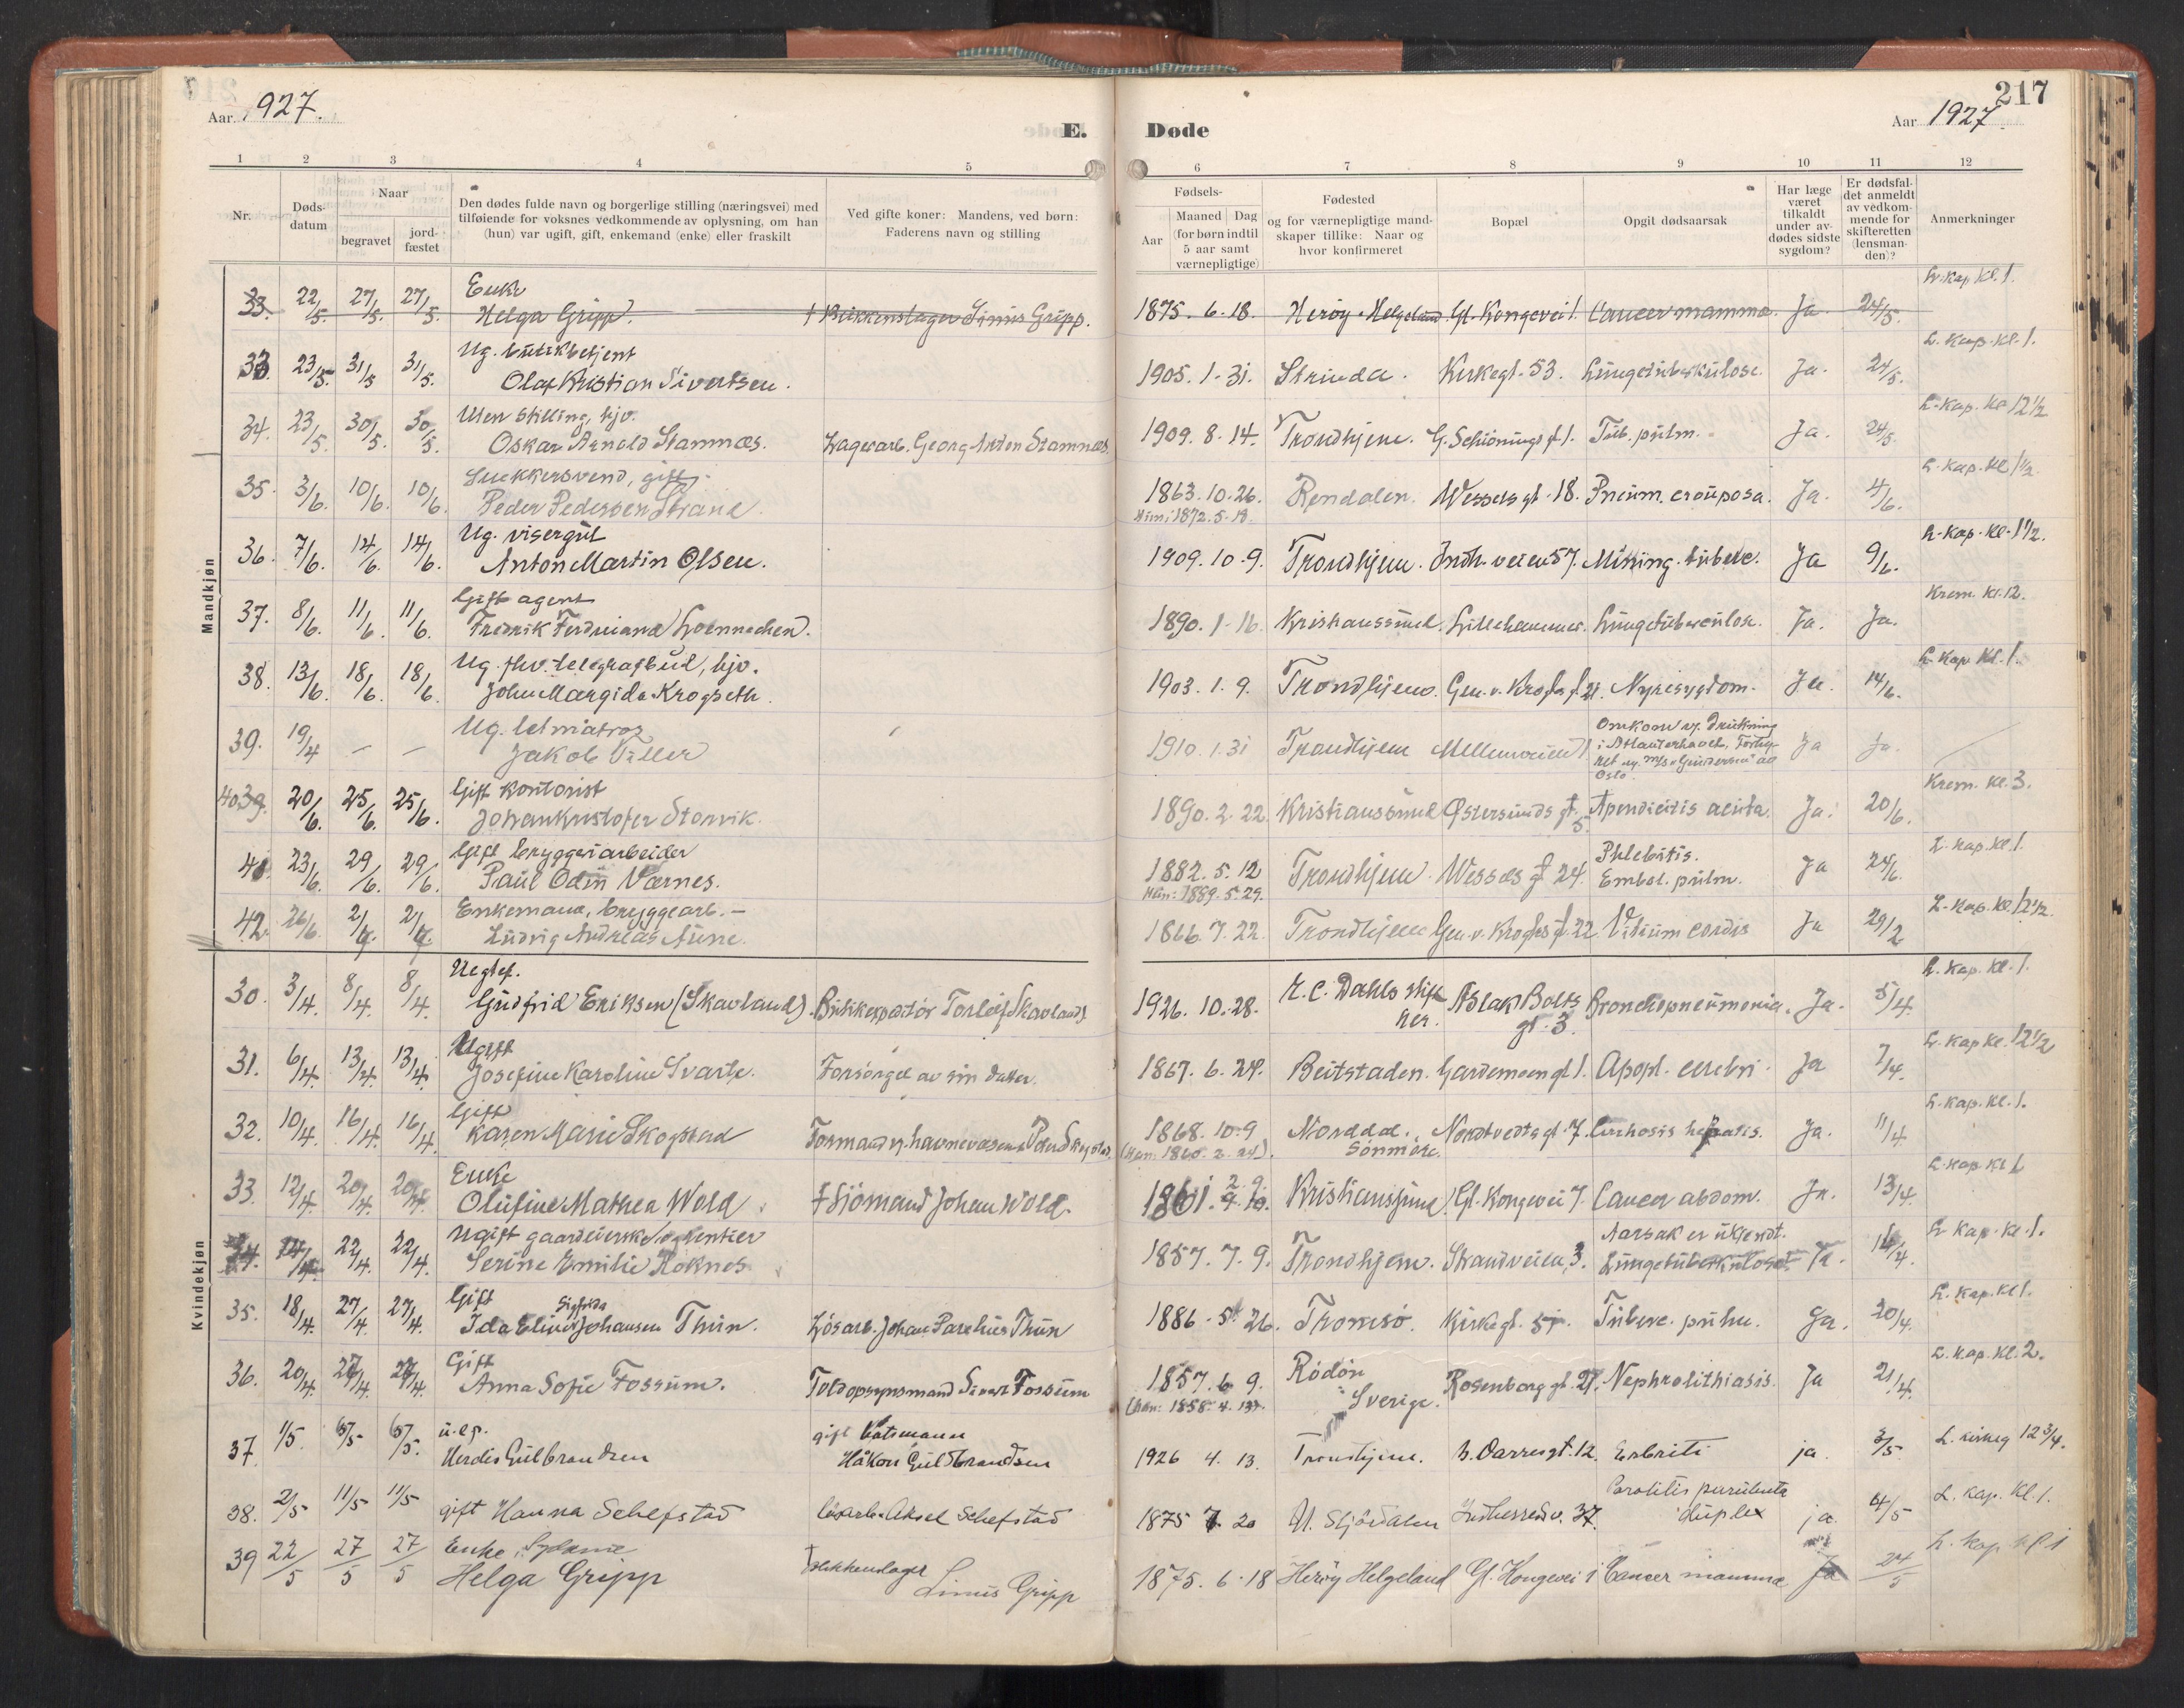 Aar 1927.
E.
Døde
Aar 1927
217
1 2 3 4 5 6 7 8 9 10 11 12
Nr.
Døds-
datum
Naar
begravet
jord-
fæstet
Den dødes fulde navn og borgerlige stilling (næringsvei) med
tilføiende for voksnes vedkommende av oplysning, om han
(hun) var ugift, gift, enkemand (enke) eller fraskilt
Ved gifte koner: Mandens, ved børn:
Faderens navn og stilling
Fødsels-
Aar
Maaned Dag
(for børn indtil
5 aar samt
værnepligtige)
Fødested
og for værnepligtige mand-
skaper tillike: Naar og
hvor konfirmeret
Bopæl
Opgit dødsaarsak
Har læge
været
tilkaldt
under av-
dødes sidste
sygdom?
Er dødsfal-
det anmeldt
av vedkom-
mende for
skifteretten
(lensman-
den)?
Anmerkninger
Mandkjøn
Enke L. kap. kl. 1.
33. 22/5. 27/5. 27/5. Helga Gripp. † Blikkenslager Linus Gripp. 1875. 6. 18. Herøy Helgeland Gl. Kongevei 1. Cancer mamma. Ja. 24/5.
Ug. butikbetjent L. kap. kl. 1.
33. 23/5. 31/5 31/5. Olaf Kristian Sivertsen. 1905. 1. 31. Strinda. Kirkegt. 53. Lungetuberkulose. Ja. 24/5.
Uten stilling, hjv. L. kap. kl 12 1/2
34. 23/5 30/5. 30/5. Oskar Arnold Stamnæs. Lagerarb. Georg Anton Stamnæs. 1909. 8. 14. Trondhjem. G. Schiønings gt. 1. Tub. pulm. Ja. 24/5.
gift. L. kap. kl 1 1/2
35. 3/6. 10/6. 10/6. Peder Pedersen Strand. 1863. 10. 26. Rendalen. Wessels gt. 18. Pneum. crouposa. Ja. 4/6.
1872. 5. 18.
Ug. visergut L. kap. kl. 1 1/2.
36. 7/6. 14/6. 14/6. Anton Martin Olsen. 1909. 10. 9. Trondhjem. Indh. veien 57. Mining. tuberc. Ja 9/6.
Gift agent Krem. kl. 12.
37. 8/6. 11/6. 11/6. Fredrik Ferdinand Loennechen. 1890. 1. 16. Kristianssund. Lillehammer. Lungetuberculose. Ja. Ja.
Ug. fhv. telegrafbud, hjv. L. kap. kl. 1.
38. 13/6. 18/6. 18/6 John Margido Krogseth. 1903. 1. 9. Trondhjem. Gen. v. Kroghs gt. 21. Nyresygdom. Ja. 14/6.
Ug. letmatros Omkom v. drukning
39. 19/4 — — Jakob Tiller 1910. 1. 31 Trondhjem i Atlanterhavet, Ja Ja.
Oslo.
Gift kontorist Krem. kl. 3.
40 39. 20/6. 25/6. 25/6. Johan Kristofer Storvik. 1890. 2. 22. Kristianssund Østersunds gt. 5. Apendicitis acuta. Ja. 20/6.
Gift bryggeriarbeider Phlebitis. L. kap. kl. 1.
41. 23/6. 29/6. 29/6. Paul Odin Værnes. 1882. 5. 12 Trondhjem. Wessels gt. 24. Embol. pulm. Ja 24/6.
1889. 5. 29.
Enkemand, bryggearb. — L. kap. kl. 12 1/2.
42. 26/6. 2/7. 2/7. Ludvig Andreas Aune. 1866. 7. 22. Trondhjem Gen. v. Kroghs gt. 22. Vitium cordis Ja 29/2
Kvindekjøn
Uegtef. L. kap. kl. 1.
30. 3/4. 8/4. 8/4. Gudfrid Eriksen (Skavland). Torleif Skavland. 1926. 10. 28. E. C. Dahls stiftelser. Aslak Bolts gt. 3. Bronchopneumonia. Ja. 5/4.
Ugift L. kap kl. 12 1/2
31. 6/4. 13/4. 13/4. Josefine Karoline Svarte. Forsørget av sin datter. 1867. 6. 24. Beitstaden. Gardemoengt 1. Apopl. cerebri. Ja 7/4.
Gift L. kap. kl. 1.
32. 10/4. 16/4. 16/4. Karen Marie Skogstad Formand v. havnevæsenet Peder Skogstad. 1868. 10. 9 Norddal, Søndmøre. Nordtvedts gt. 7. Cirrhosis hepatis. Ja. 11/4
(Han: 1860. 2. 24).
Enke L. kap kl 1
33. 12/4. 20/4. 20/4. Olufine Mathea Wold † Sjømand Johan Wold. 1861. 2. 9. Kristianssund. Gl. Kongevei 7. Cancer abdom. Ja. 13/4.
Ugift gaardeierske og rentier Aarsak er ukjendt. L. kap. kl. 1.
34. 14/4. 22/4. 22/4. Serine Emilie Roknes 1857. 7. 9. Trondhjem. Strandveien 3. Lungetuberkulose. Ja. 16/4.
Gift Sigfrida L. kap. kl 1.
35. 18/4. 27/4 27/4. Ida Eline Johansen Thun. Løsarb. Johan Parelius Thun 1886. 5. 26. Tromsø. Kirkegt. 51. Tuberc. pulm. Ja. 20/4.
Gift L. kap. kl. 2.
36. 20/4. 27/4. 27/4. Anna Sofie Fossum. Toldopsynsmand Sivert Fossum 1857. 6 9. Rödön i Sverige. Rosenborg gt. 27. Nephrolithiasis. Ja 21/4.
(Han: 1858. 4. 13).
u. e. p. gift baatsmann
37. 1/5. 6/5 6/5. Herdis Gulbrandsen Håkon Guldbrandsen 1926 4. 13. Trondhjem. 12. ja. 3/5. L. kirkeg 12 3/4.
Parotitis purulenta
38. 2/5 11/5 11/5 gift Hanna Schefstad løsarb. Aksel Schefstad 1875 7. 20 N. Stjørdalen Indherredsv. 37. duplex ja. 4/5 L. kap. kl. 1.
Enke,
39 22/5 27/5 27/5 Helga Gripp † blikkenslager Linus Gripp 1875. 6. 18 Herøy Helgeland Gl. Kongevei 1 Cancer mamma Ja 24/5 L. kap kl 1